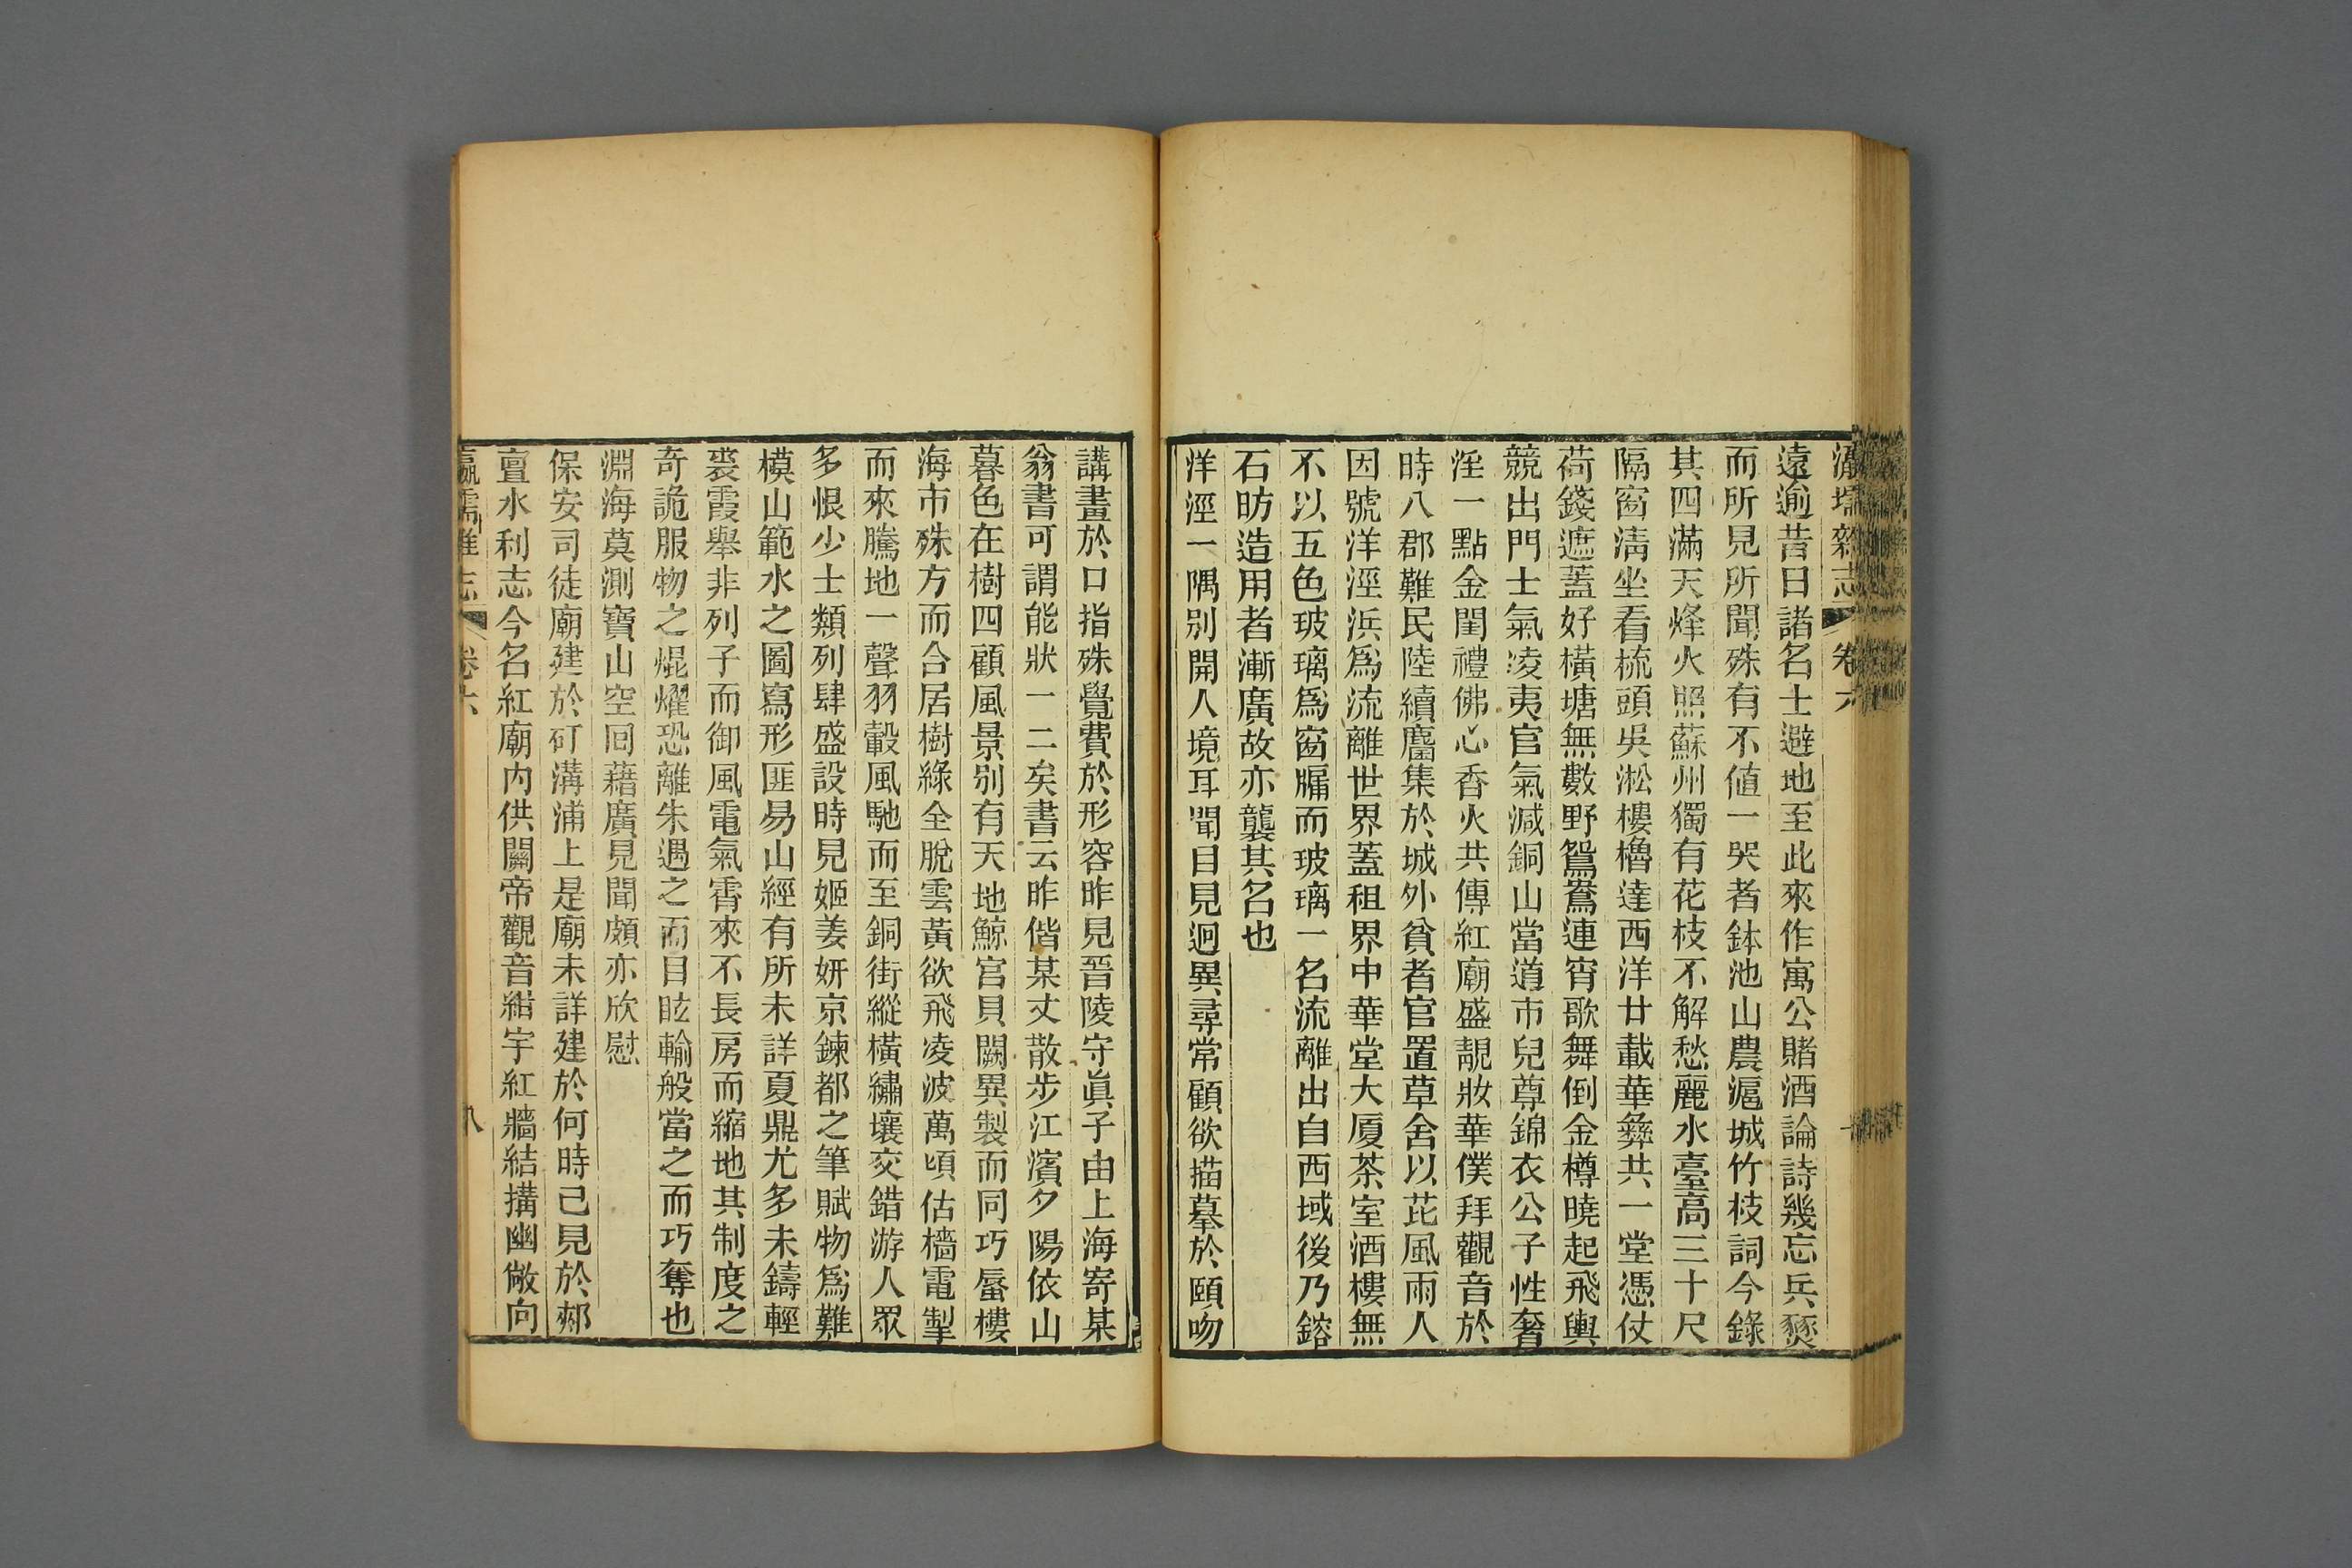 瀛壖雜志 卷六
遠逾昔日諸名士避地至此來作寓公賭酒論詩幾忘兵燹
而所見所聞殊有不値一哭者鉢池山農滬城竹枝詞今錄
其四滿天烽火照蘇州獨有花枝不解愁麗水臺高三十尺
隔窗淸坐看梳頭吳淞樓櫓達西洋廿載華彜共一堂憑仗
荷錢遮蓋好橫塘無數野鴛鴦連宵歌舞倒金樽曉起飛輿
競出門士氣凌夷官氣減銅山當道市兒尊錦衣公子性奢
淫一點金閨禮佛心香火共傳紅廟盛靚妝華僕拜觀音於
時八郡難民陸續麕集於城外貧者官置草舍以芘風雨人
因號洋涇浜爲流離世界蓋租界中華堂大厦茶室酒樓無
不以五色玻璃爲窗牖而玻璃一名流離出自西域後乃鎔
石昉造用者漸廣故亦襲其名也
洋涇一隅別開人境耳聞目見迥異尋常顧欲描摹於頤吻
講畫於口指殊覺費於形容昨見晉陵守眞子由上海寄某
翁書可謂能狀一二矣書云昨偕某丈散步江濱夕陽依山
暮色在樹四顧風景別有天地鯨宮貝闕異製而同巧蜃樓
海市殊方而合居樹綠全脫雲黃欲飛凌波萬頃估檣電掣
而來騰地一聲羽轂風馳而至銅街縱橫繡壤交錯游人眾
多恨少士類列肆盛設時見姬姜妍京鍊都之筆賦物爲難
模山範水之圖寫形匪易山經有所未詳夏鼎尤多未鑄輕
裘霞舉非列子而御風電氣霄來不長房而縮地其制度之
奇詭服物之焜燿恐離朱遇之而目眩輸般當之而巧奪也
淵海莫測寶山空囘藉廣見聞頗亦欣慰
保安司徒廟建於矴溝浦上是廟未詳建於何時已見於郟
亶水利志今名紅廟內供關帝觀音紺宇紅牆結搆幽敞向
瀛壖雜志 卷六 八